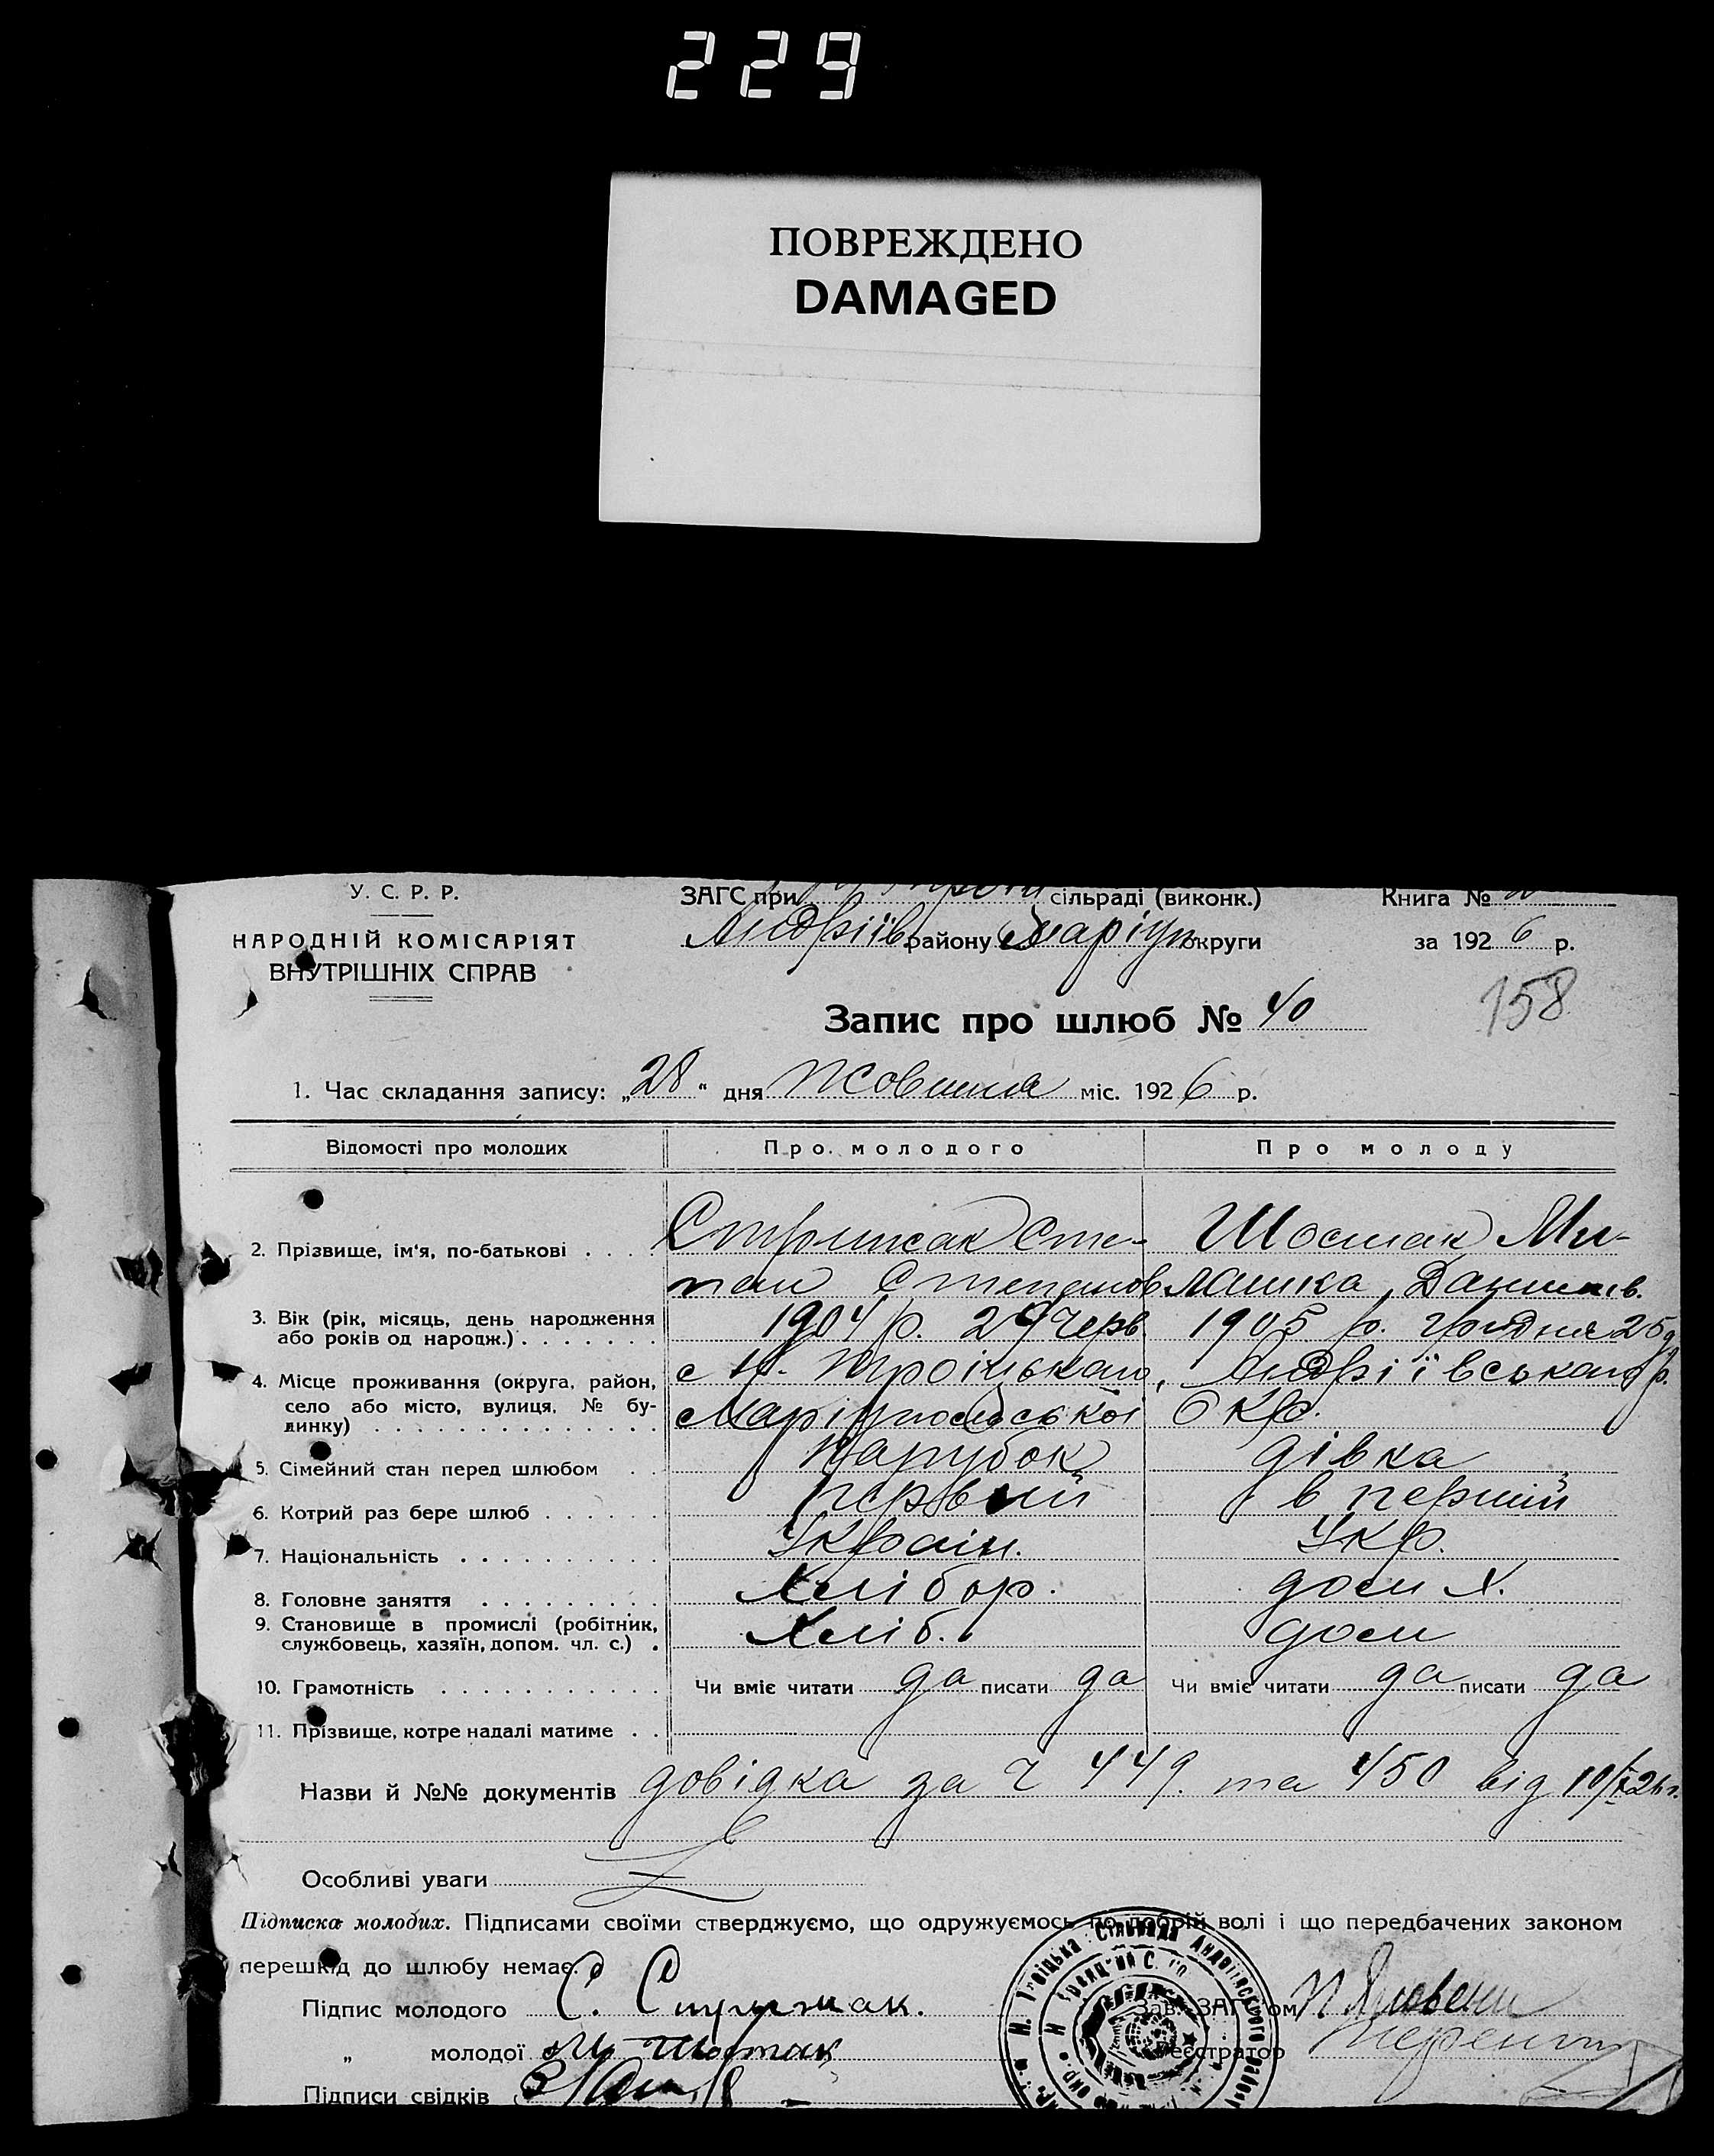 229
ПОВРЕЖДЕНО
DAMAGED
У. С. Р. Р.
НАРОДНІЙ КОМІСАРІЯТ
ВНУТРІШНІХ СПРАВ
ЗАГС при сільраді (виконк.)
Андріїв району Маріуп округи
Книга №
за 1926 р.
158
Запис про шлюб № 40
1. Час складання запису: „28“ дня Жовтня міс. 1926 р.
Відомості про молодих Про молодого Про молоду
2. Прізвище, ім'я, по-батькові . . . . Стрижак Сте- Шостак Ми-
пан Степанов лашка
3. Вік (рік, місяць, день народження 1904 р. 29 Черв. 1905 р. Грудня 25 д
або років од народж.) . . . . . . .
4. Місце проживання (округа, район, с Н. Троіцького, Андріївського р.
село або місто, вулиця, № бу- Маріупольської Окр.
динку) . . . . . . . . . . . . . .
5. Сімейний стан перед шлюбом . . Парубок дівка
6. Котрий раз бере шлюб . . . . . . первий в перший
7. Національність . . . . . . . . . . Україн. Укр.
8. Головне заняття . . . . . . . . . Хлібор. дом х.
9. Становище в промислі (робітник, Хліб. дом
службовець, хазяїн, допом. чл. с.) .
10. Грамотність . . . . . . . . . . . Чи вміє читати да писати да Чи вміє читати да писати да
11. Прізвище, котре надалі матиме . .
Назви й №№ документів довідка за ч 449. та 450 від
Особливі уваги
Підписка молодих. Підписами своїми стверджуємо, що одружуємось по добрій волі і що передбачених законом
перешкід до шлюбу немає.
Підпис молодого С. Стрижак. Зав. ЗАГС'ом
„ молодої М Шостак Реєстратор
Підписи свідків
Н. Троіцька Сільрада Андріївського району